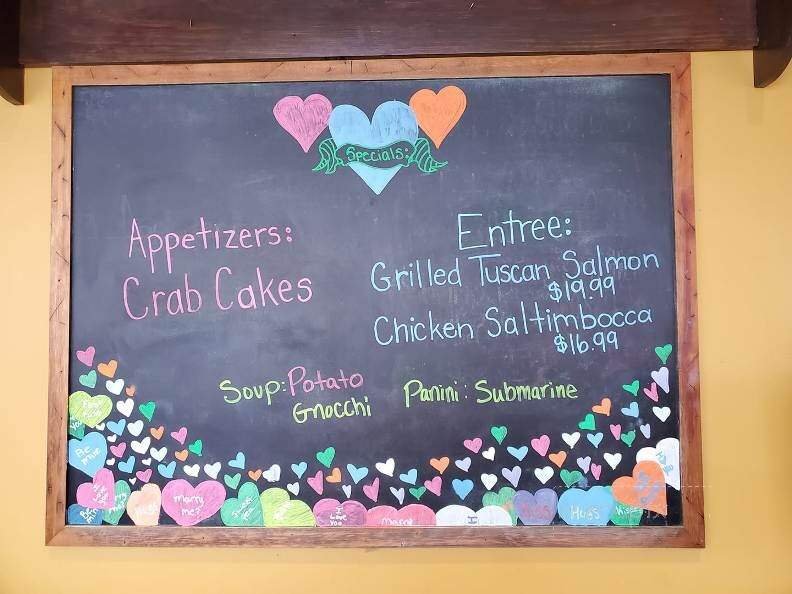 Specials:
Appetizers:
Crab Cakes
Entree:
Grilled Tuscan Salmon
$19.99
Chicken Saltimbocca
$16.99
Soup: Potato
Gnocchi
Panini: Submarine
Be
mine
Marry
me?
I
love
you
Hugs